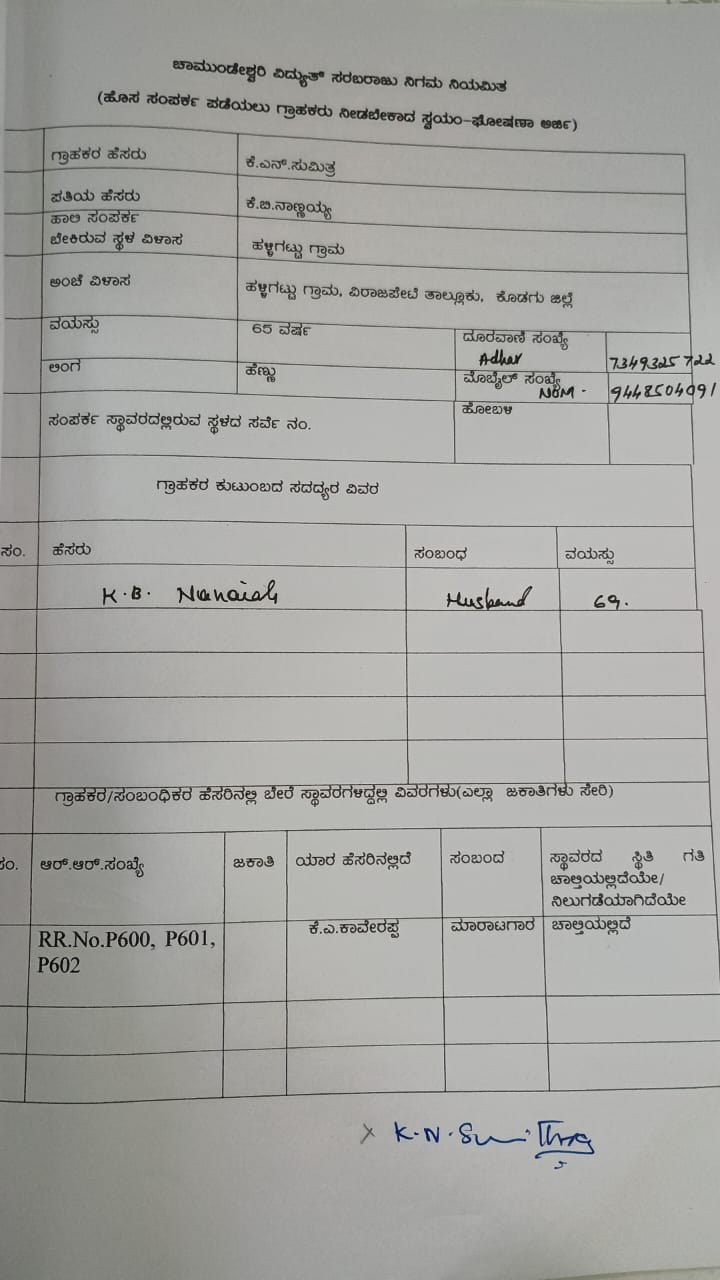 ಚಾಮುಂಡೇಶ್ವರಿ ವಿದ್ಯುತ್ ಸರಬರಾಜು ನಿಗಮ ನಿಯಮಿತ
(ಹೊಸ ಸಂಪರ್ಕ ಪಡೆಯಲು ಗ್ರಾಹಕರು ನೀಡಬೇಕಾದ ಸ್ವಯಂ-ಘೋಷಣಾ ಅರ್ಜಿ)
ಗ್ರಾಹಕರ ಹೆಸರು ಕೆ.ಎನ್.ಸುಮಿತ್ರ
ಪತಿಯ ಹೆಸರು ಕೆ.ಬಿ.ನಾಣ್ಣಯ್ಯ
ಹಾಲಿ ಸಂಪರ್ಕ
ಬೇಕಿರುವ ಸ್ಥಳ ವಿಳಾಸ ಹಳ್ಳಿಗಟ್ಟು ಗ್ರಾಮ
ಅಂಚೆ ವಿಳಾಸ ಹಳ್ಳಿಗಟ್ಟು ಗ್ರಾಮ, ವಿರಾಜಪೇಟೆ ತಾಲ್ಲೂಕು, ಕೊಡಗು ಜಿಲ್ಲೆ
ವಯಸ್ಸು 65 ವರ್ಷ ದೂರವಾಣಿ ಸಂಖ್ಯೆ
Adhar 7349325722
ಲಿಂಗ ಹೆಣ್ಣು ಮೊಬೈಲ್ ಸಂಖ್ಯೆ
NOM - 9448504091
ಸಂಪರ್ಕ ಸ್ಥಾವರದಲ್ಲಿರುವ ಸ್ಥಳದ ಸರ್ವೆ ನಂ. ಹೋಬಳಿ
ಗ್ರಾಹಕರ ಕುಟುಂಬದ ಸದದ್ಯರ ವಿವರ
ಸಂ. ಹೆಸರು ಸಂಬಂಧ ವಯಸ್ಸು
K.B. Nanaiah Husband 69.
ಗ್ರಾಹಕರ/ಸಂಬಂಧಿಕರ ಹೆಸರಿನಲ್ಲಿ ಬೇರೆ ಸ್ಥಾವರಗಳಿದ್ದಲ್ಲಿ ವಿವರಗಳು(ಎಲ್ಲಾ ಜಕಾತಿಗಳು ಸೇರಿ)
ಸಂ. ಆರ್.ಆರ್.ಸಂಖ್ಯೆ ಜಕಾತಿ ಯಾರ ಹೆಸರಿನಲ್ಲಿದೆ ಸಂಬಂದ ಸ್ಥಾವರದ ಸ್ಥಿತಿ ಗತಿ
ಚಾಲ್ತಿಯಲ್ಲಿದೆಯೇ/
ನಿಲುಗಡೆಯಾಗಿದೆಯೇ
RR.No.P600, P601, ಕೆ.ಎ.ಕಾವೇರಪ್ಪ ಮಾರಾಟಗಾರ ಚಾಲ್ತಿಯಲ್ಲಿದೆ
P602
x K.N.Sumithra